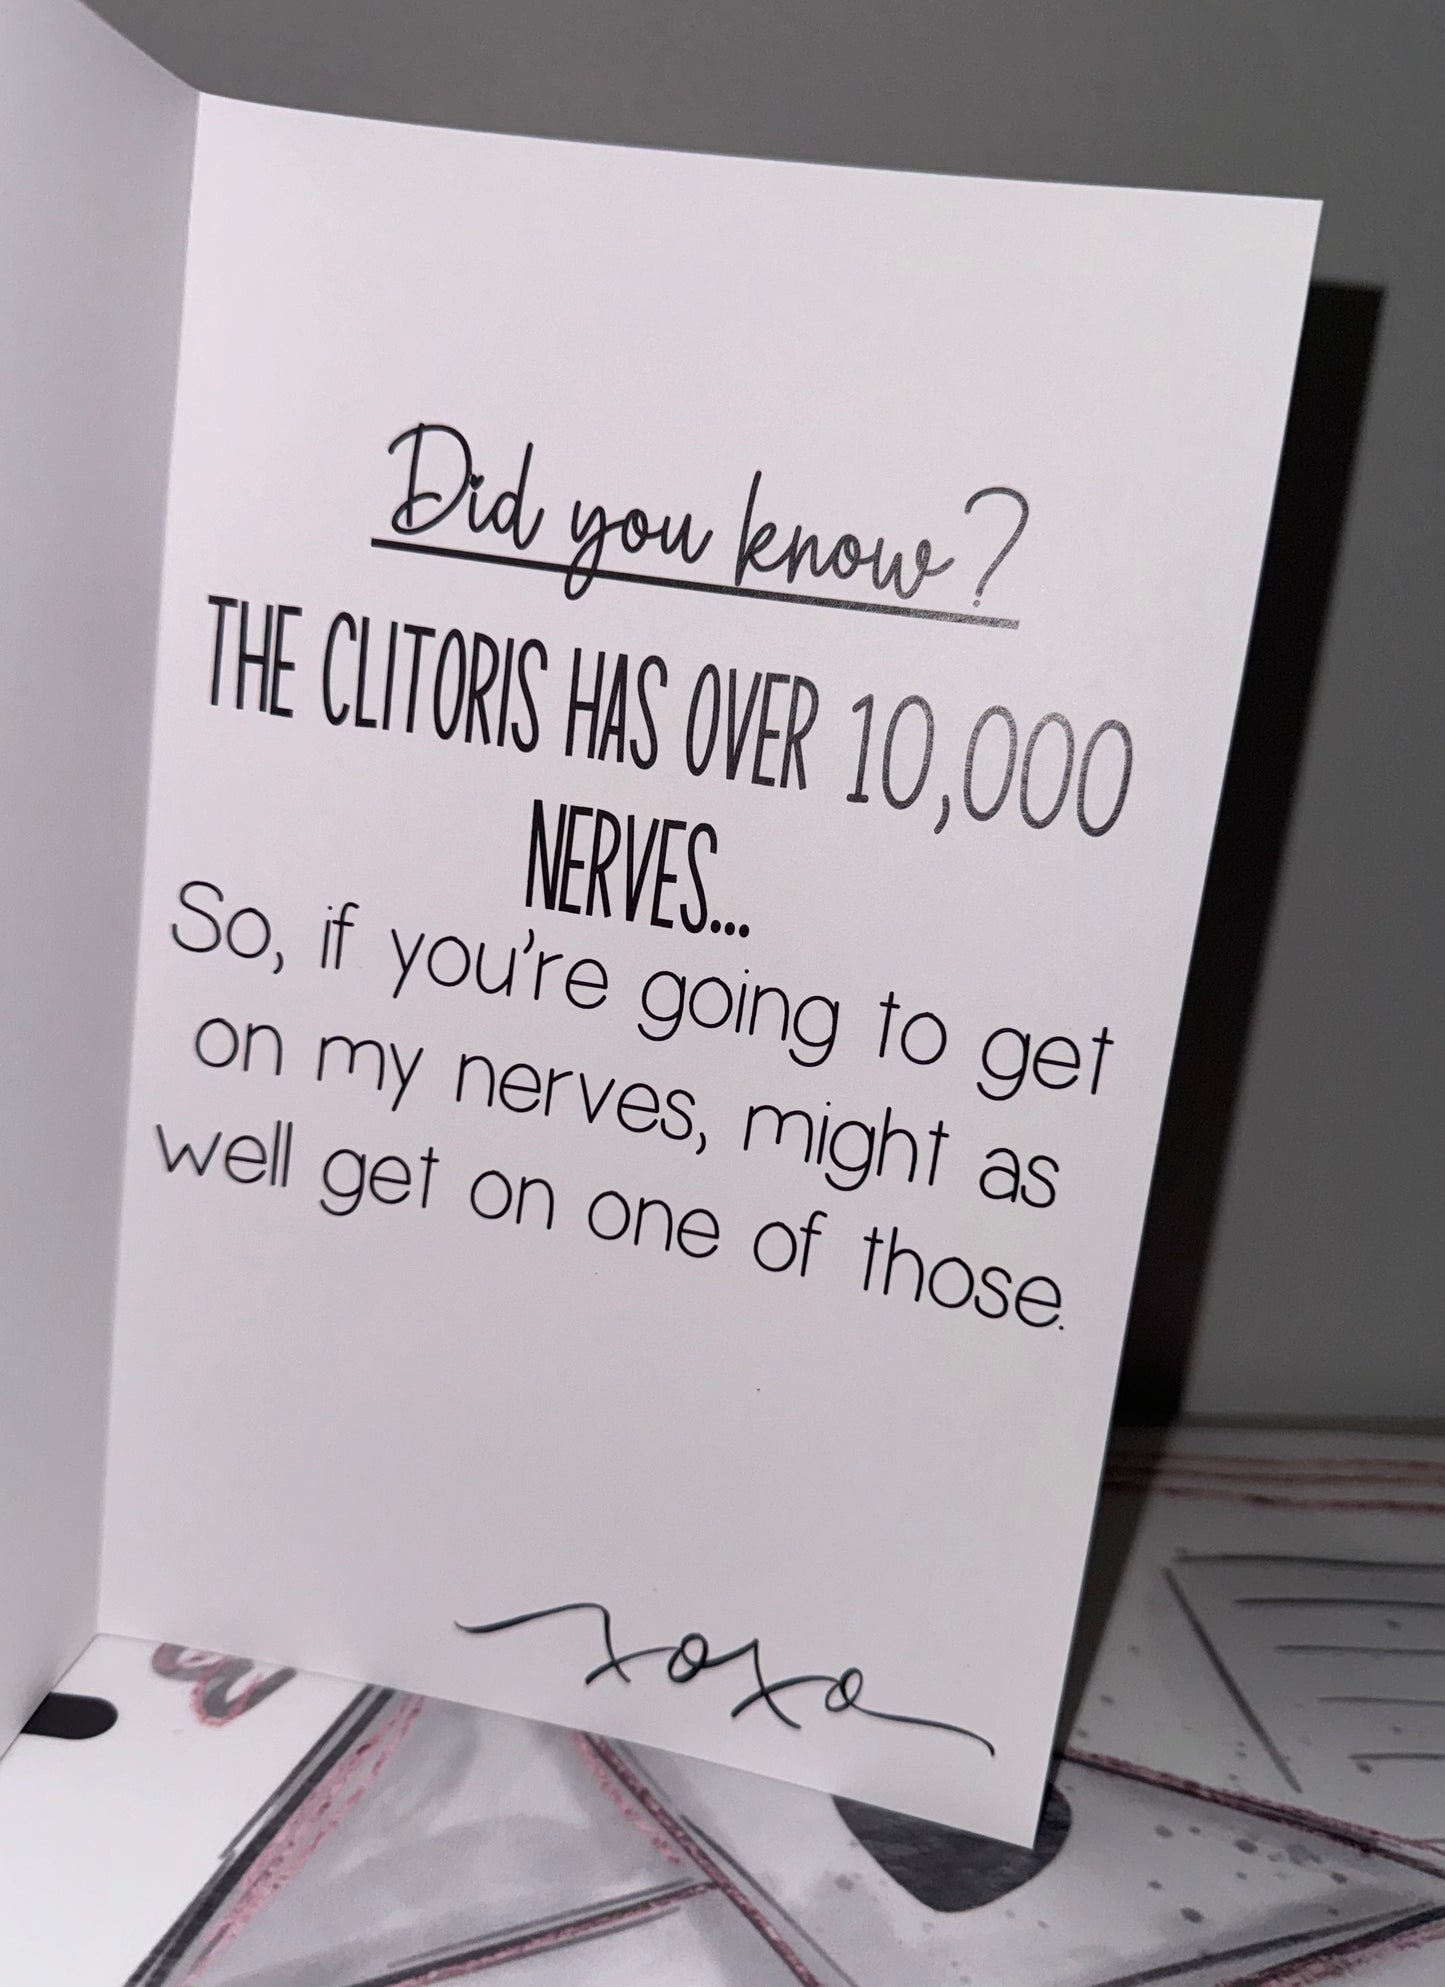 Did you know?
THE CLITORIS HAS OVER 10,000
NERVES...
So, if you're going to get
on my nerves, might as
well get on one of those.
xoxo